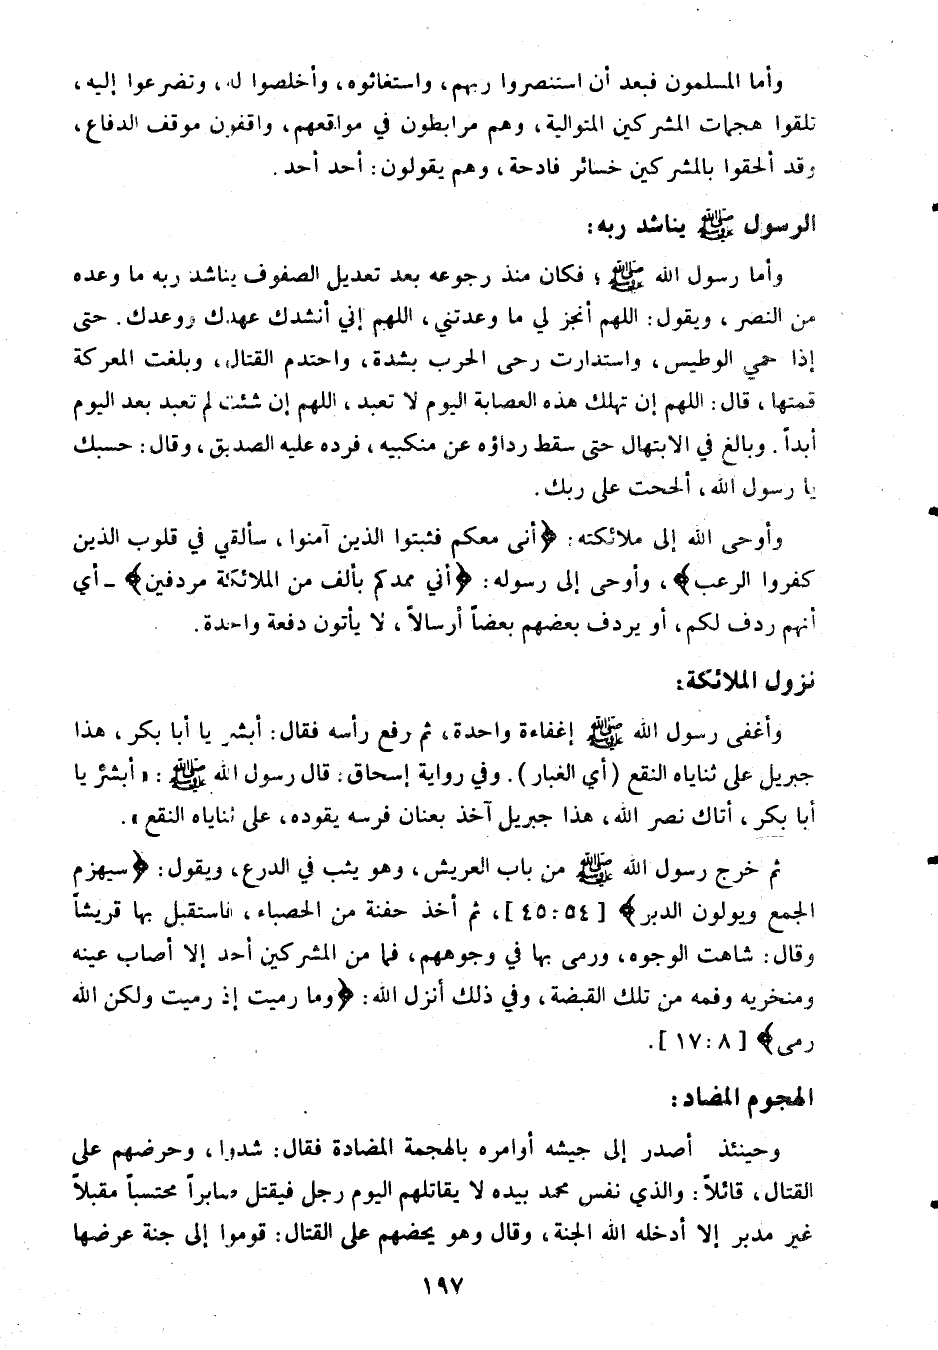 وأما المسلمون فبعد أن استنصروا ربهم، واستغاثوه، وأخلصوا له، وتضرعوا إليه،
تلقوا هجمات المشركين المتوالية، وهم مرابطون في مواقعهم، واقفون موقف الدفاع،
وقد ألحقوا بالمشركين خسائر فادحة، وهم يقولون: أحد أحد.
الرسول ﷺ يناشد ربه:
وأما رسول الله ﷺ؛ فكان منذ رجوعه بعد تعديل الصفوف يناشد ربه ما وعده
من النصر، ويقول: اللهم أنجز لي ما وعدتني، اللهم إني أنشدك عهدك ووعدك. حتى
إذا حمي الوطيس، واستدارت رحى الحرب بشدة، واحتدم القتال، وبلغت المعركة
قمتها، قال: اللهم إن تهلك هذه العصابة اليوم لا تعبد، اللهم إن شئت لم تعبد بعد اليوم
أبداً. وبالغ في الابتهال حتى سقط رداؤه عن منكبيه، فرده عليه الصديق، وقال: حسبك
يا رسول الله، ألححت على ربك.
وأوحى الله إلى ملائكته: ﴿أنى معكم فثبتوا الذين آمنوا، سألقي في قلوب الذين
كفروا الرعب﴾، وأوحى إلى رسوله: ﴿أني ممدكم بألف من الملائكة مردفين﴾ ـ أي
أنهم ردف لكم، أو يردف بعضهم بعضاً أرسالاً، لا يأتون دفعة واحدة.
نزول الملائكة:
وأغفى رسول الله ﷺ إغفاءة واحدة، ثم رفع رأسه فقال: أبشر يا أبا بكر، هذا
جبريل على ثناياه النقع (أي الغبار). وفي رواية إسحاق: قال رسول الله ﷺ: «أبشر يا
أبا بكر، أتاك نصر الله، هذا جبريل آخذ بعنان فرسه يقوده، على ثناياه النقع».
ثم خرج رسول الله ﷺ من باب العريش، وهو يثب في الدرع، ويقول: ﴿سيهزم
الجمع ويولون الدبر﴾ [٤٥:٥٤]، ثم أخذ حفنة من الحصباء، فاستقبل بها قريشاً
وقال: شاهت الوجوه، ورمى بها في وجوههم، فما من المشركين أحد إلا أصاب عينه
ومنخريه وفمه من تلك القبضة، وفي ذلك أنزل الله: ﴿وما رميت إذ رميت ولكن الله
رمى﴾ [١٧:٨].
الهجوم المضاد:
وحينئذ أصدر إلى جيشه أوامره بالهجمة المضادة فقال: شدوا، وحرضهم على
القتال، قائلاً: والذي نفس محمد بيده لا يقاتلهم اليوم رجل فيقتل صابراً محتسباً مقبلاً
غير مدبر إلا أدخله الله الجنة، وقال وهو يحضهم على القتال: قوموا إلى جنة عرضها
١٩٧